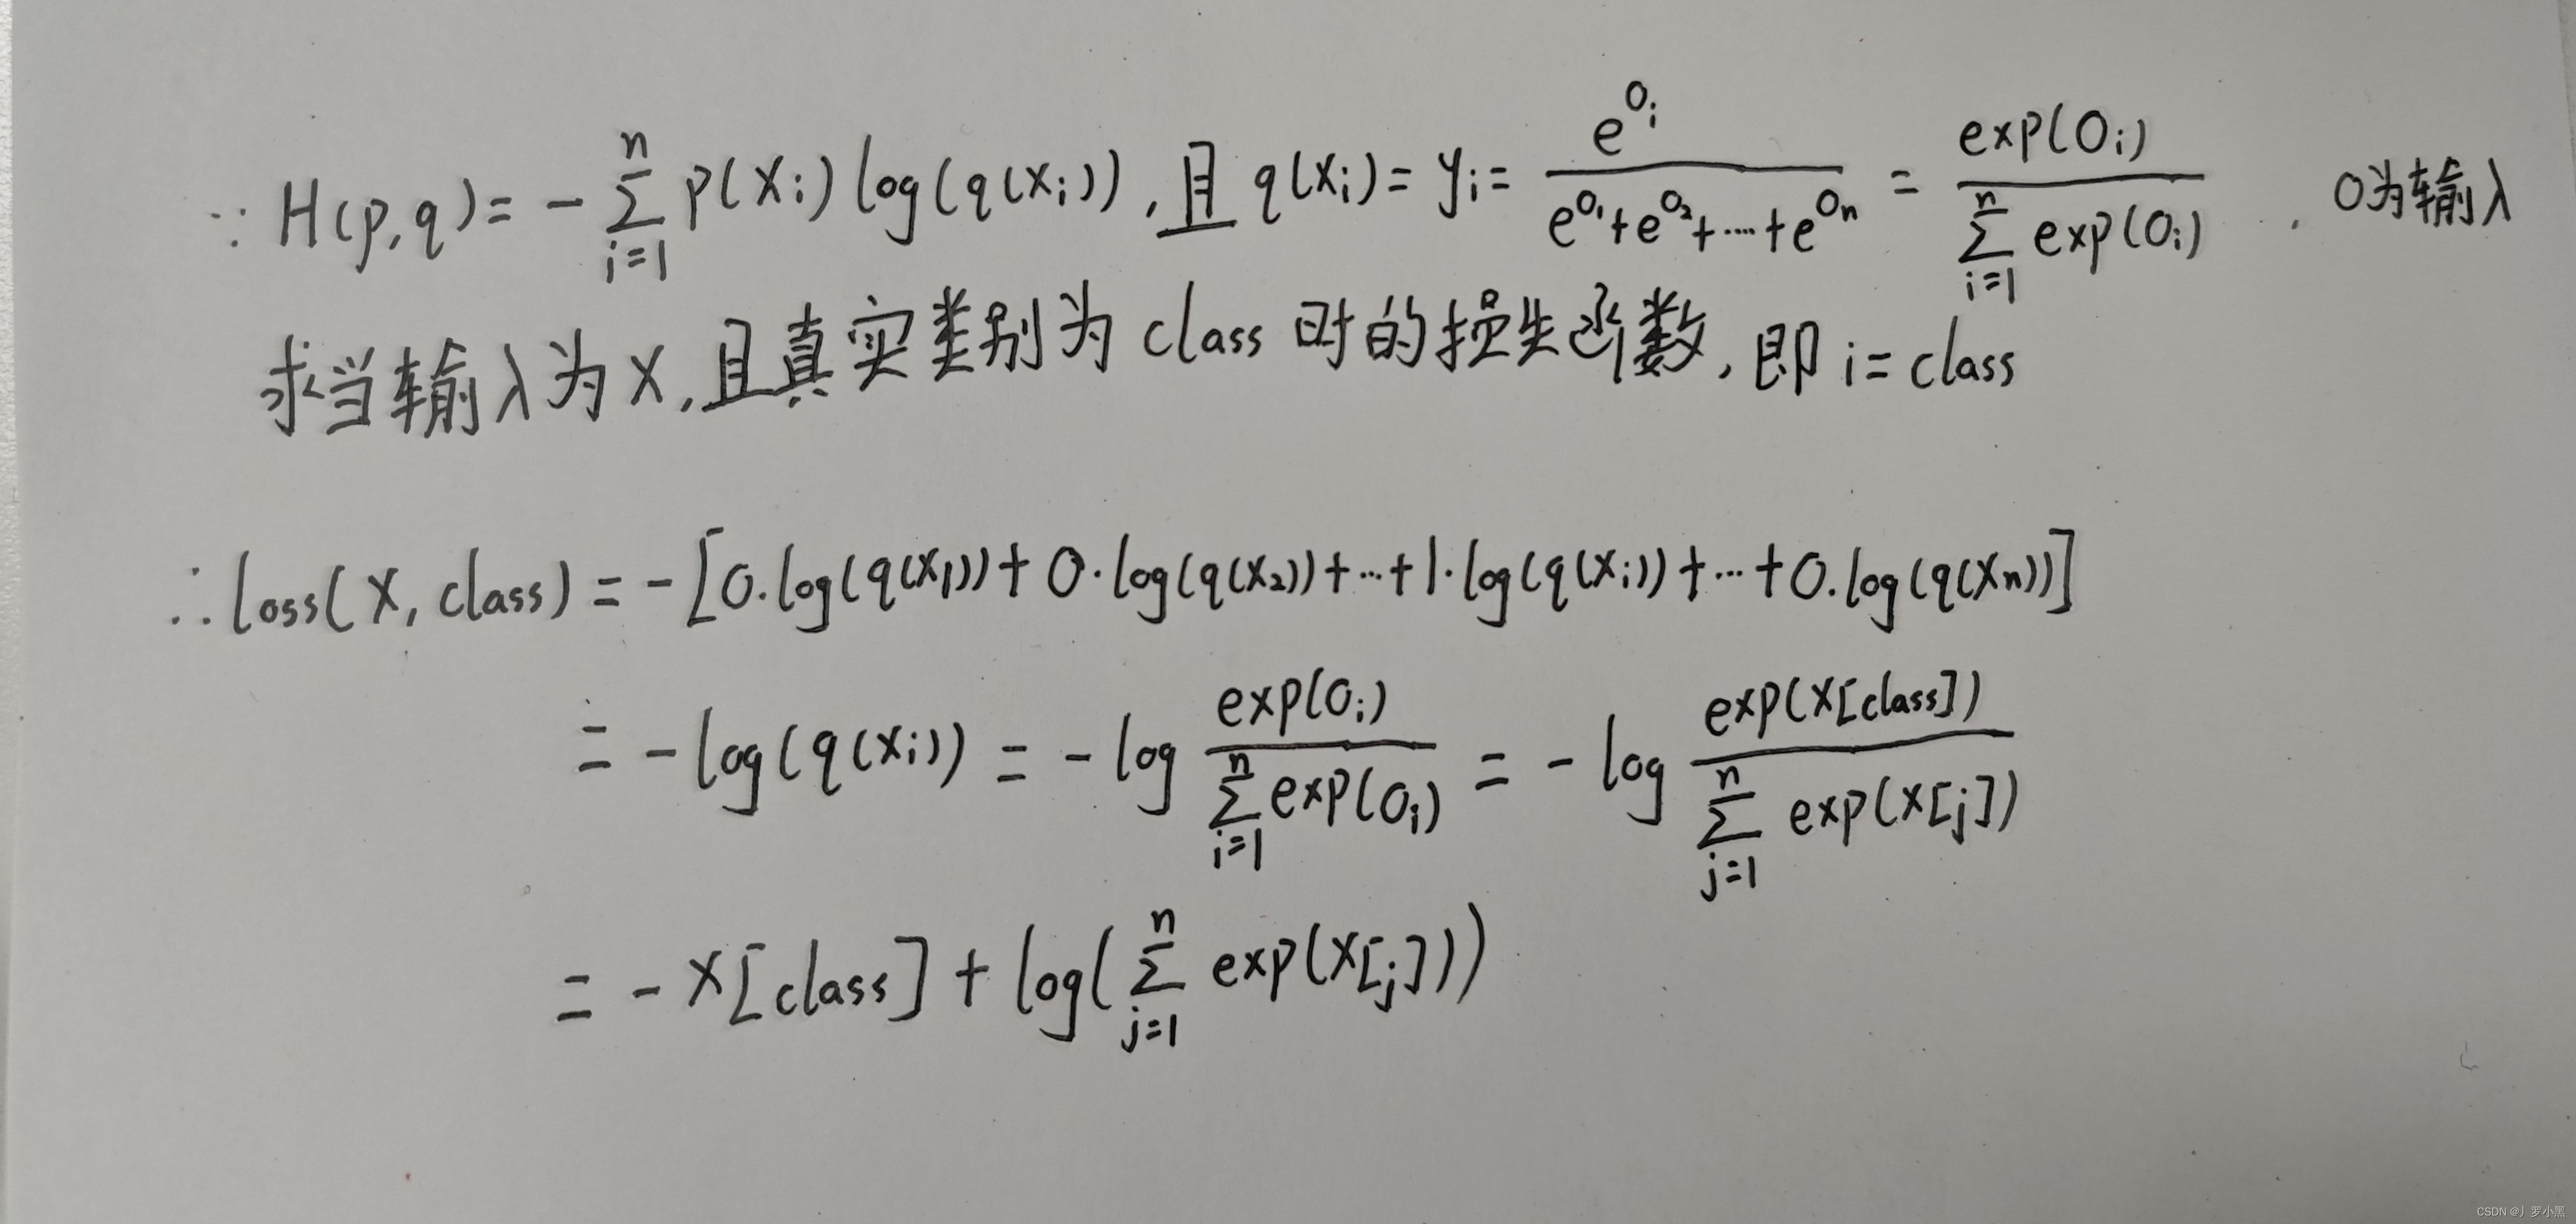 ∵ H(p,q) = - \sum_{i=1}^{n} p(x_i) log(q(x_i)), 且 q(x_i) = y_i = \frac{e^{O_i}}{e^{O_1}+e^{O_2}+⋯+e^{O_n}} = \frac{exp(O_i)}{\sum_{i=1}^{n} exp(O_i)}. O为输入
求当输入为x,且真实类别为class时的损失函数,即 i=class
∴ loss(x, class) = -[0·log(q(x_1)) + 0·log(q(x_2)) + ⋯ + 1·log(q(x_i)) + ⋯ + 0·log(q(x_n))]
= -log(q(x_i)) = -log \frac{exp(O_i)}{\sum_{i=1}^{n} exp(O_i)} = -log \frac{exp(x[class])}{\sum_{j=1}^{n} exp(x[j])}
= -x[class] + log(\sum_{j=1}^{n} exp(x[j]))
CSDN @丿罗小黑